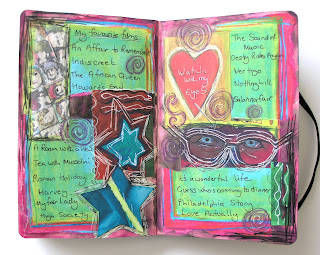 My favourite films
An Affair to Remember
Indiscreet
The African Queen
Howards End
A Room with a View
Tea with Mussolini
Roman Holiday
Harvey
My Fair Lady
High Society
Watch
with my
Eyes
The Sound of
Music
Destry Rides Again
Vertigo
Notting Hill
Sabrina fair
is a wonderful life
Guess who's coming to dinner
Philadelphia Story
Love Actually